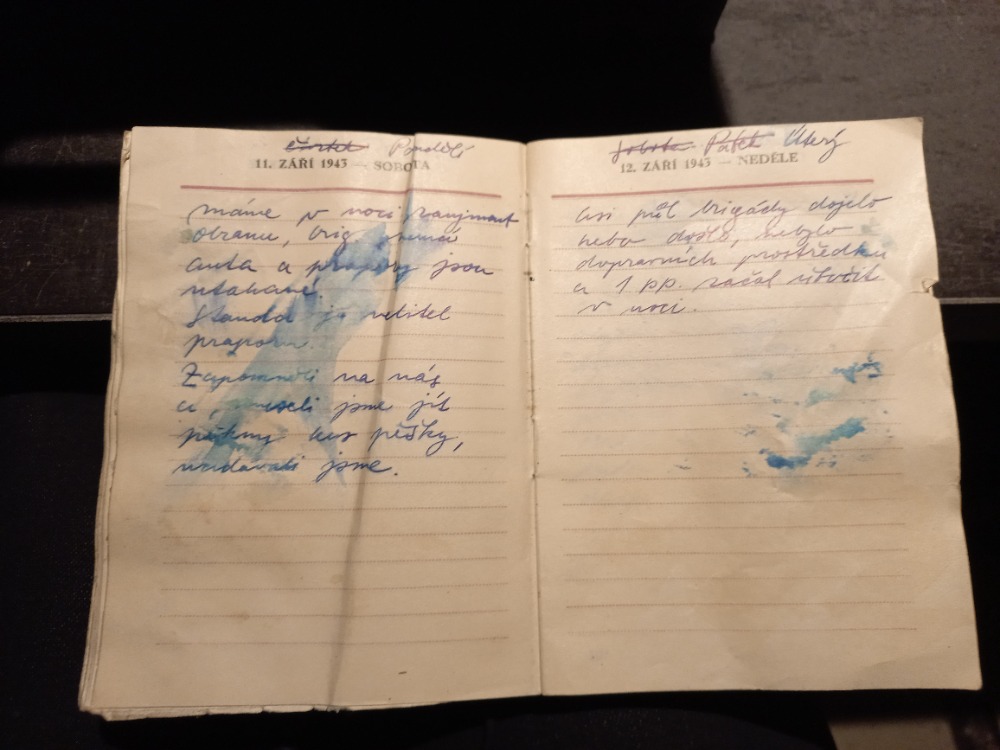 čtvrtek Pondělí
11. ZÁŘÍ 1943 — SOBOTA
máme v noci zaujmout
obranu, brig.
auta a prapory jsou
utahané.
Standa je velitel
praporu.
Zapomněli na nás
a museli jsme jít
pěkný kus pěšky,
nadávali jsme.
sobota Pátek Úterý
12. ZÁŘÍ 1943 — NEDĚLE
asi půl brigády dojelo
nebo došlo, nebylo
dopravních prostředků
a 1 pp. začal útočit
v noci.